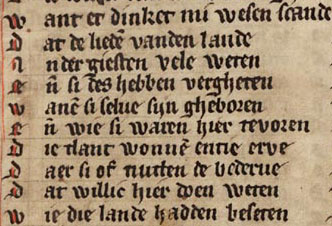 w ant et dinket mi wesen scande
D at de liede vanden lande
A nder giesten vele weten
E ñ si des hebben vergheten
W anē si selue sijn gheboren
E ñ wie si waren hier tevoren
D ie tlant wonnē entie erve
D aer si of nutten de bederue
D at willic hier doen weten
W ie die lande hadden beseten